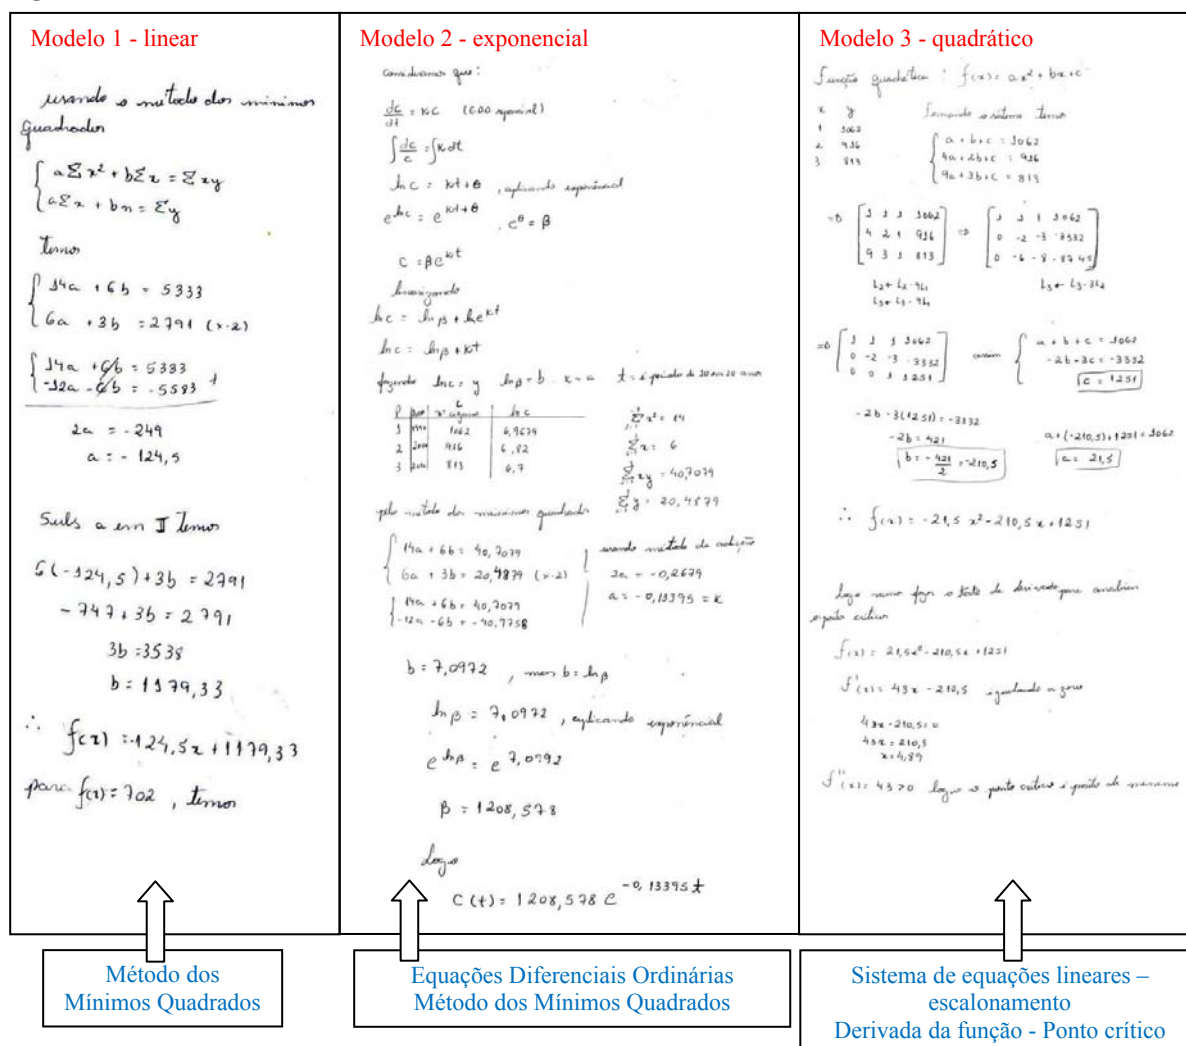 Modelo 1 - linear
usando o método dos mínimos
quadrados
{ a Σ x² + b Σ x = Σ xy
{ a Σ x + b n = Σ y
temos
{ 14a + 6b = 5333
{ 6a + 3b = 2791 (x-2)
{ 14a + 6b = 5333
{ -12a - 6b = -5583
2a = -249
a = - 124,5
Subs a em I temos
6(-124,5) + 3b = 2791
- 747 + 3b = 2791
3b = 3538
b = 1179,33
∴ f(x) = -124,5x + 1179,33
para f(x) = 702 , temos
Método dos
Mínimos Quadrados
Modelo 2 - exponencial
consideramos que:
dc/dt = KC (EDO
∫ dc/c = ∫ K dt
ln c = kt + θ , aplicando exponêncial
e^ln c = e^kt+θ , e^θ = β
C = β e^kt
linearizando
ln c = ln β + ln e^kt
ln c = ln β + kt
fazendo ln c = y ln β = b k = a t = é período de 10 em 10 anos
ln c
1 1062 6,9679
2 936 6,82
3 813 6,7
Σ x² = 14
Σ x = 6
Σ xy = 40,7079
Σ y = 20,4879
pelo método dos mínimos quadrados
{ 14a + 6b = 40,7079
{ 6a + 3b = 20,4879 (x-2)
{ 14a + 6b = 40,7079
{ -12a - 6b = -40,9758
usando método da adição
2a = -0,2679
a = -0,13395 = K
b = 7,0972 , mas b = ln β
ln β = 7,0972 , aplicando exponêncial
e^ln β = e^7,0792
β = 1208,578
Logo
C (t) = 1208,578 e^-0,13395 t
Equações Diferenciais Ordinárias
Método dos Mínimos Quadrados
Modelo 3 - quadrático
Função quadrática : f(x) = ax² + bx + c
x y
1 1062
2 936
3 813
formando o sistema temos
{ a + b + c = 1062
{ 4a + 2b + c = 916
{ 9a + 3b + c = 813
⇒ [ 1 1 1 1062 ] ⇒ [ 1 1 1 1062 ]
[ 4 2 1 916 ] [ 0 -2 -3 -3332 ]
[ 9 3 1 813 ] [ 0 -6 -8 -8745 ]
L2 ← L2 - 4L1 L3 ← L3 - 3L2
L3 ← L3 - 9L1
⇒ [ 1 1 1 1062 ] assim { a + b + c = 1062
[ 0 -2 -3 -3332 ] { -2b - 3c = -3332
[ 0 0 1 1251 ] { c = 1251
-2b - 3(1251) = -3332
-2b = 421
b = - 421/2 = -210,5
a + (-210,5) + 1251 = 1062
a = 21,5
∴ f(x) = -21,5 x² - 210,5 x + 1251
Logo vamos fazer o teste da derivada para analisar
o ponto crítico
f(x) = 21,5x² - 210,5x + 1251
f'(x) = 43x - 210,5 igualando a zero
43x - 210,5 = 0
43x = 210,5
x = 4,89
f''(x) = 43 > 0 logo o ponto crítico é ponto de mínimo
Sistema de equações lineares –
escalonamento
Derivada da função - Ponto crítico